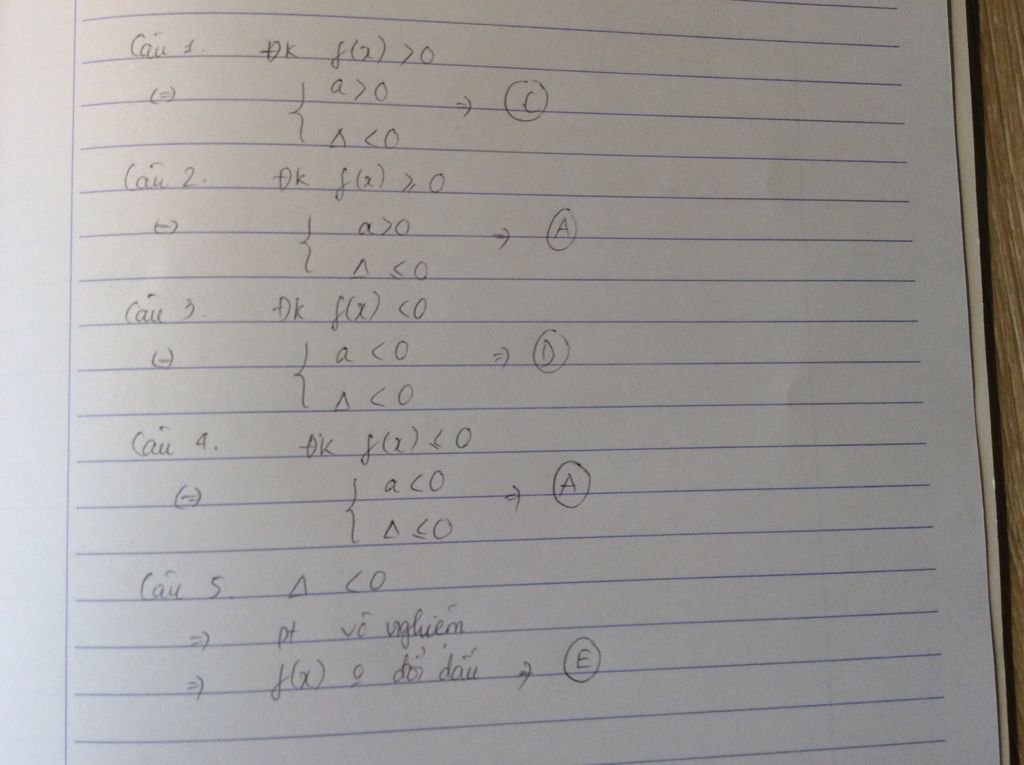 Câu 1. ĐK f(x) > 0
(=) { a > 0 => C
Δ < 0
Câu 2. ĐK f(x) ≥ 0
(=) { a > 0 => A
Δ ≤ 0
Câu 3. ĐK f(x) < 0
(=) { a < 0 => D
Δ < 0
Câu 4. ĐK f(x) ≤ 0
(=) { a < 0 => A
Δ ≤ 0
Câu 5. Δ < 0
=> pt vô nghiệm
=> f(x) o đổi dấu => E